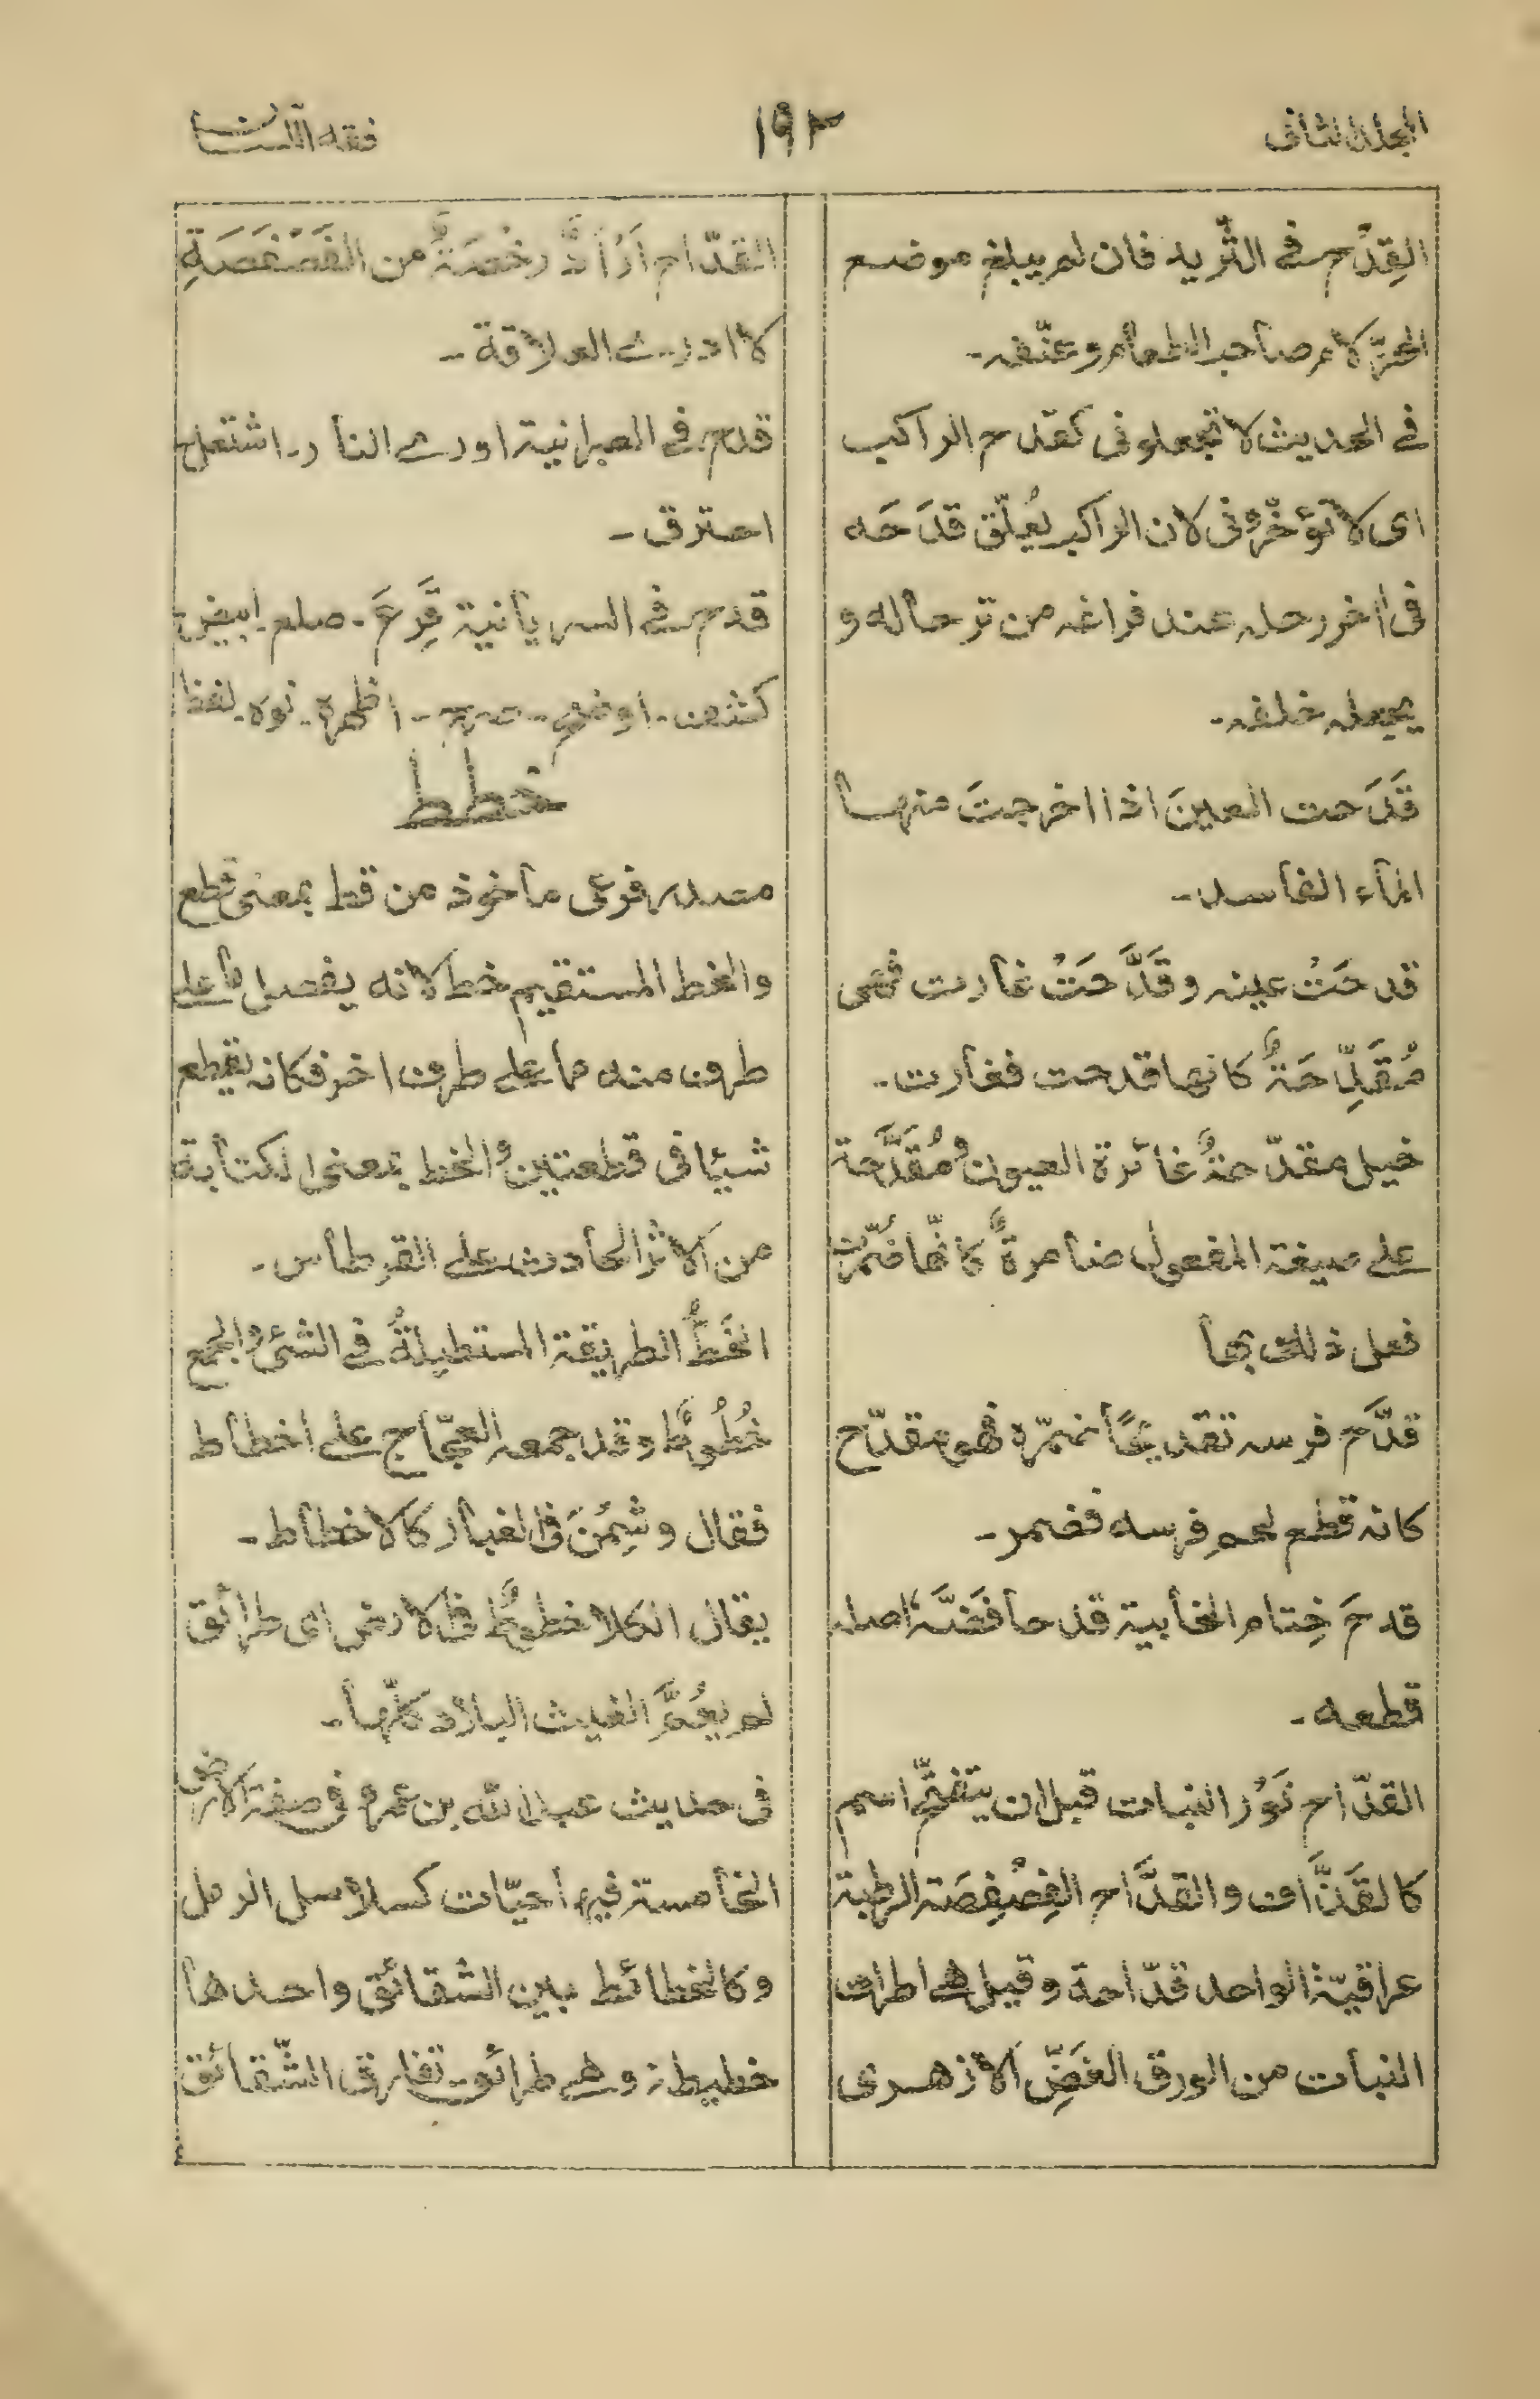 المجلد الثانی
١٩٣
فقه اللسان
القِدْح فی الثّرید فان لم یبلغ موضع
الحزّ لام صاحب الطعام و عنّفه۔
فی الحدیث لا تجعلونی کقدح الراکب
ای لا تؤخّرونی لان الراکب یُعلّق قدَحَه
فی اٰخر رحله عند فراغه من ترحاله و
یجعله خلفه۔
قَدَحت العینَ اذا اخرجتَ منها
الماء الفاسد۔
قدحَتْ عینه وقَدَّحَتْ غارت فهی
مُقَدِّحَةٌ کانها قدحت فغارت۔
خیل مقدّحةٌ غائرة العیون ومُقَدَّحة
علی صیغة المفعول ضامرةٌ کانّها ضُمّرت
فعل ذلك بها
قدَّحَ فرسه تقدیحًا ضمّره فهو مقدّح
کانه قطع لحم فرسه فضمر۔
قدحَ خِتام الخابیة قدحا فَضَّه اصله
قطعه۔
القدّاح نَوْرُ النبات قبل ان یتفتّح اسم
کالقَذَّاف والقدَّاح الفِصْفِصَة الرطبة
عراقیّة الواحد قدّاحة وقیل هی اطراف
النبات من الورق الغَضِّ الازهری
القدّاح اَرْاٰدٌ رخْصَةٌ من الفَصْفَصَةِ
قدح فی العبرانیة اوری النار۔ اشتعل
احترق۔
قدح فی السریانیة قَرِعَ۔ صلع۔ ابیض
کشف۔ اوضح۔ اظهره۔ نوه۔ لفظ
خطط
مصدر فرعی ماخوذ من قط بمعنی قطع
والخط المستقیم خط لانه یفصل ما علی
طرف منه مما علی طرف اخر فکانه یقطع
شیئا فی قطعتین والخط بمعنی الکتابة
من الاثر الحادث علی القرطاس۔
الخَطُّ الطریقة المستطیلةُ فی الشیٔ والجمع
خُطُوطٌ وقد جمعه العجّاج علی اخطاط
فقال وشِمْنَ فی الغبار کالاخطاط۔
یقال الکلا خطوطٌ فی الارض ای طرائق
لم یعُمَّ الغیث البلاد کلّها۔
فی حدیث عبد الله بن عمرو فی صفة الارض
الخامسة فیها حیّات کسلاسل الرمل
وکالخطائط بین الشقائق واحدها
خطیطة وهی طرائق تفارق الشّقائق